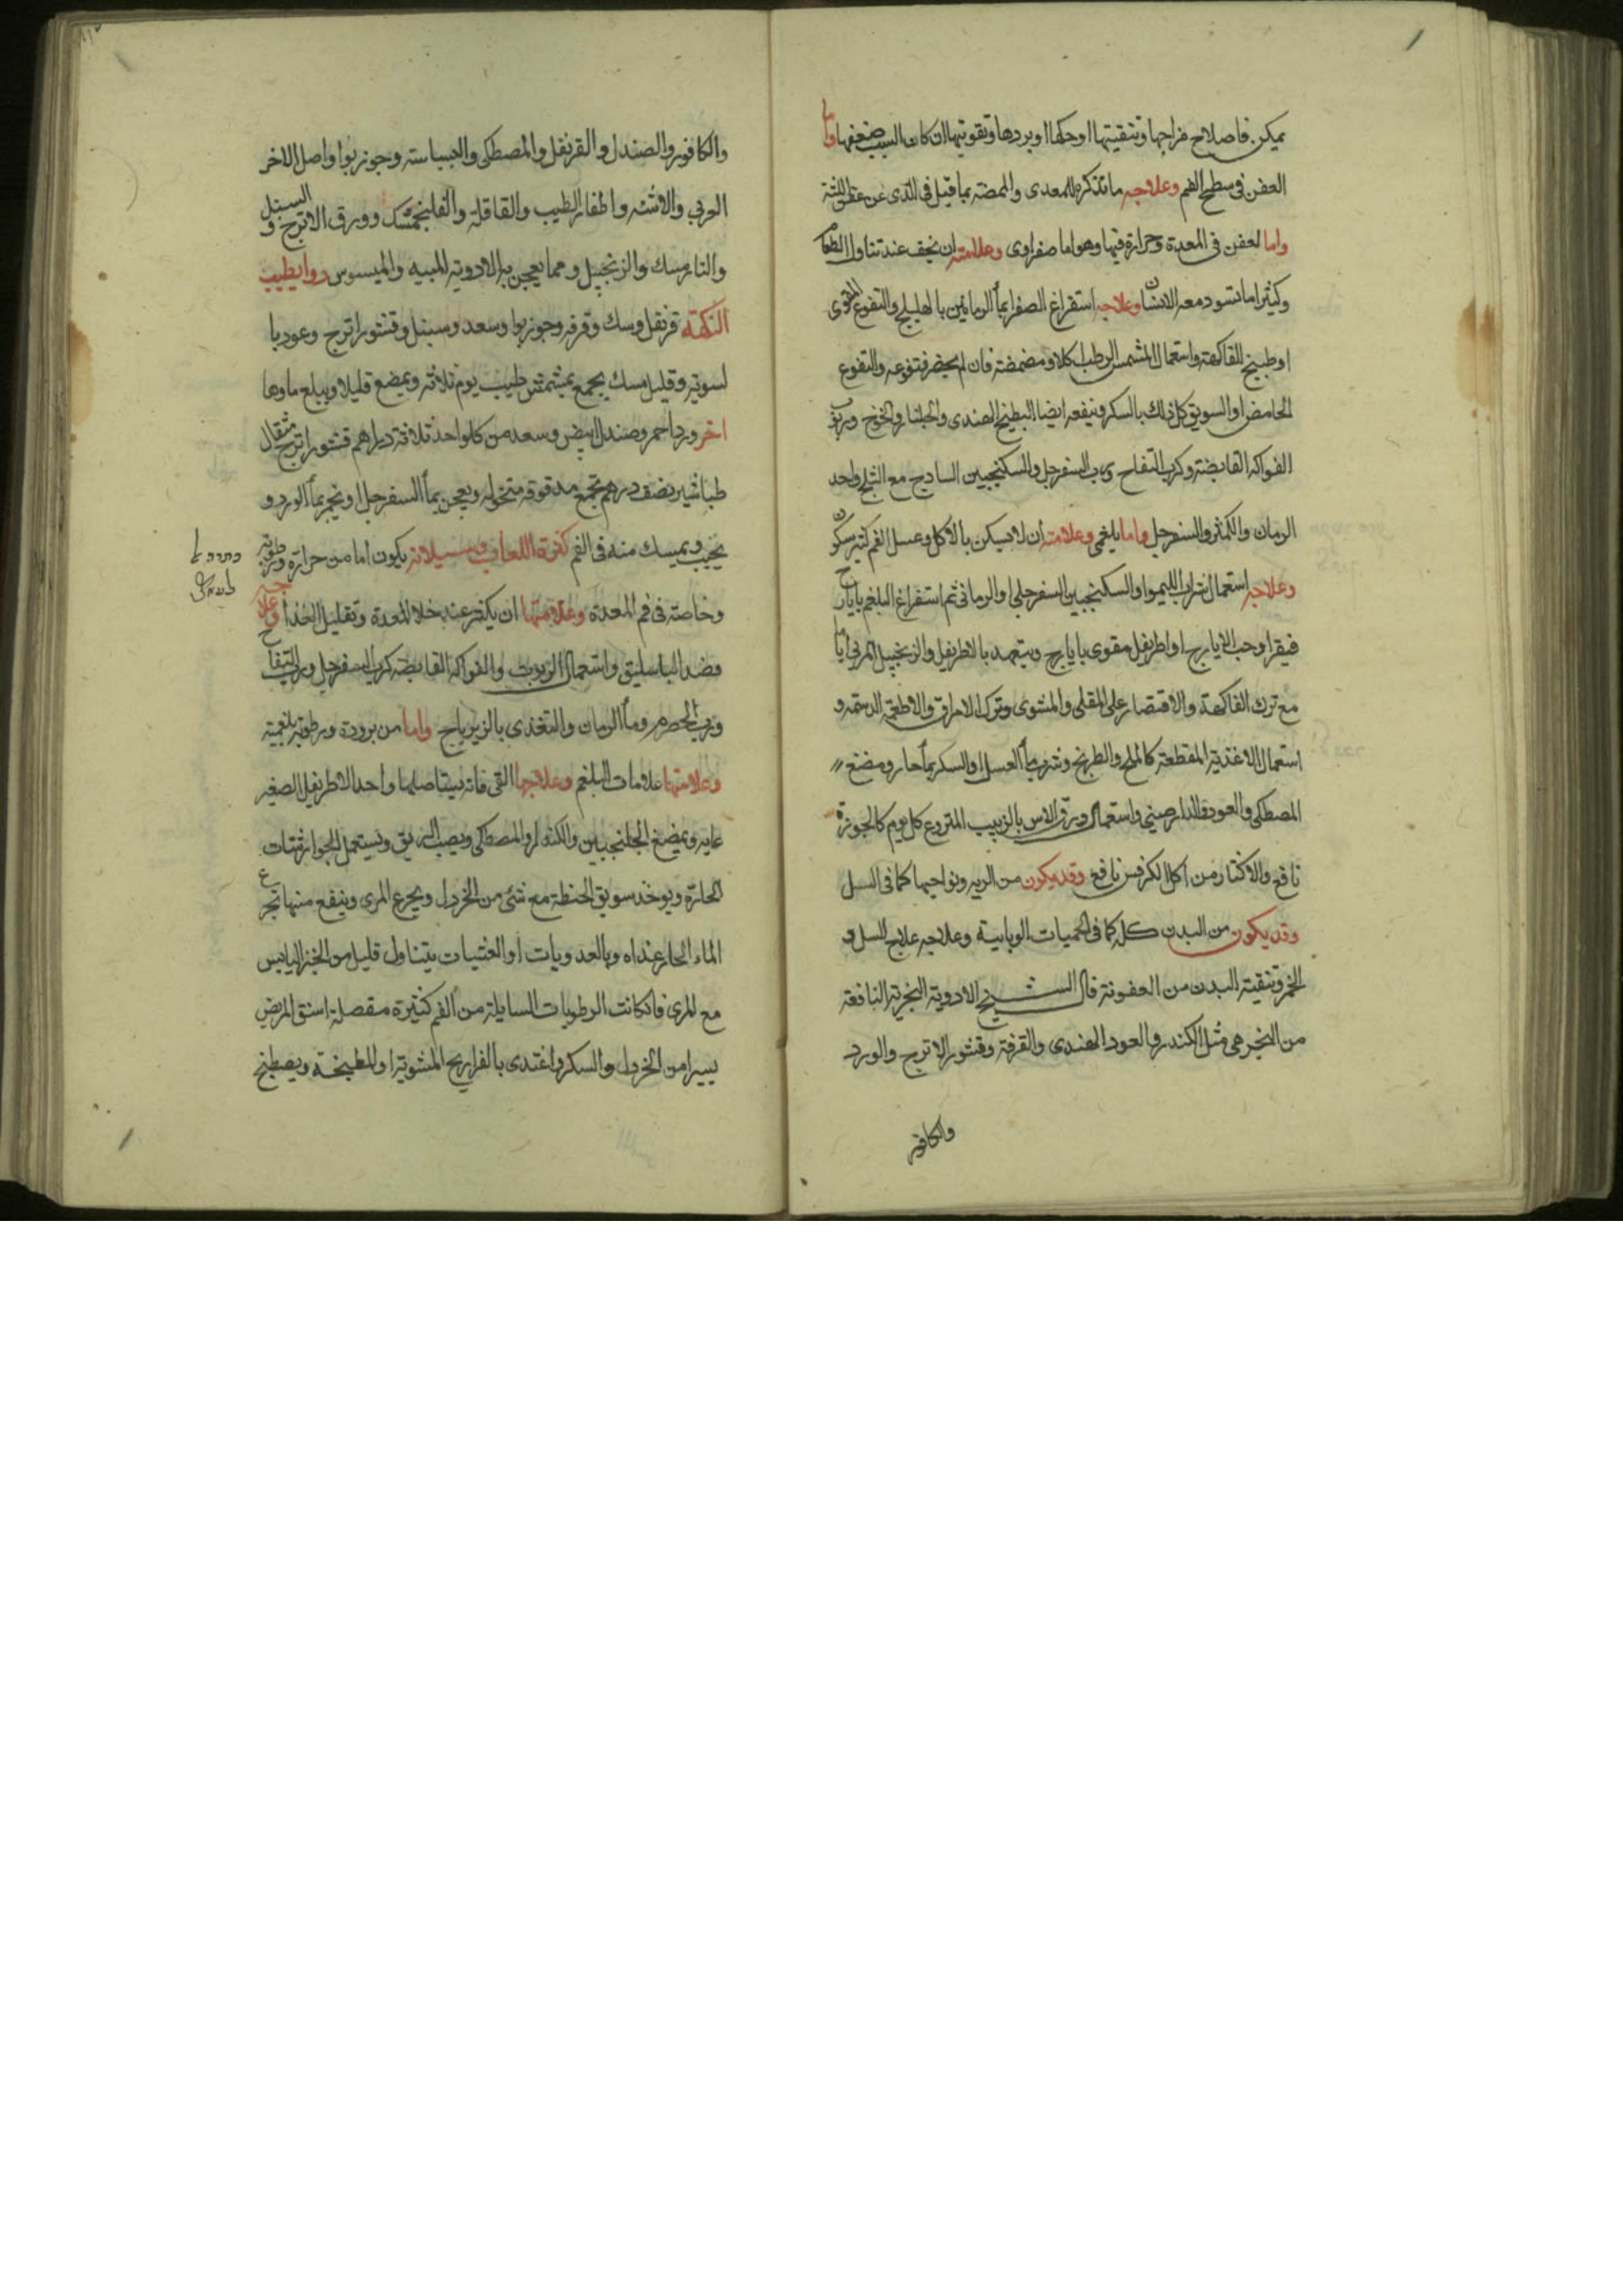 يمكن فاصلاح مزاجها وتنقيتها اوحكها اوبردها وتقويتها ان كان السبب ضعفها واما
العفن فى سطح الفم وعلاجه ما نذكره للمعدى والمضمضة بما قيل فى الذى عن عفن اللثة
واما لعفن فى المعدة وحرارة فيها وهو اما صفراوى وعلامته ان يخف عند تناول الطعام
وكثيرا ما تسود معه الاسنان وعلاجه استفراغ الصفرا بماء الرمانين بالهليلج والنقوع المقوى
او طبيخ الفاكهة واستعمال المشمش الرطب اكلا ومضمضة فان لم يحضر فنقوعه والنقوع
الحامض او السويق كل ذلك بالسكر وينفعه ايضا البطيخ الهندى والخيار والخوخ وربوب
الفواكه القابضة وكرب التفاح ورب السفرجل والسكنجبين الساذج مع الثلج واحد
الرمان والكمثرى والسفرجل واما بلغمى وعلامته ان لا يسكن بالاكل وعسل الفم كثير يكون
وعلاجه استعمال شراب الليموا والسكنجبين السفرجلى او الرمانى ثم استفراغ البلغم بايارج
فيقرا وحب الايارج او اطريفل مقوى بايارج ويتعهد بالاطريفل والزنجبيل المربى اياما
مع ترك الفاكهة والاقتصار على المقلى والمشوى وترك الامراق والاطعمة الدسمة و
استعمال الاغذية المقطعة كالملح والطريخ وشرب ماء العسل او السكر بماء حار ومضغ
المصطكى والعود والدارصينى واستعمال ورق الاس بالزبيب المنزوع كل يوم كالجوزة
نافع والاكثار من اكل الكرفس نافع وقد يكون من الريه ونواحيها كما فى السل
وقد يكون من البدن كله كما فى الحميات الوبايية وعلاجه علاج السل و
الخمر وتنقية البدن من العفونة قال الشيخ الادوية البخرية النافعة
من البخر هى مثل الكندر والعود الهندى والقرفة وقشور الاترج والورد
والكافور
والكافور والصندل والقرنفل والمصطكى والبسباسة وجوزبوا واصل الاخر
العربي والاشنه واظفار الطيب والقاقلة والفلنجمشك وورق الاترج والسنبل و
والنارمسك والزنجبيل ومما يعجن به الادوية الميبه والميسوس دوا يطيب
النكهة قرنفل وسك وقرفه وجوزبوا وسعد وسنبل وقشور اترج وعود با
لسويه وقليل مسك يجمع بميشمش طيب يوم ثلاثه ويمضع قليلا ويبلع ماوها
اخر ورد احمر وصندل ابيض وسعد من كل واحد ثلاثة دراهم قشور اترج مثقال
طباشير نصف درهم يجمع مدقوقه منخوله ويعجن بماء السفرجل او يخمر بماء الورد و
يحبب ويمسك منه فى الفم كثرة اللعاب وسيلانه يكون اما من حرارة ورطوبة
وخاصة فى فم المعدة وعلامتها ان يكثر عند خلا المعدة وتقليل الغذا وعلاجه
فصد الباسليق واستعمال الربوب والفواكه القابضه كرب السفرجل ورب التفاح
ورب الحصرم وماء الرمان والتغذى بالزيرباج واما من برودة ورطوبة بلغمية
وعلامتها علامات البلغم وعلاجها القى فانه يستاصلها واحد الاطريفل الصغير
عليه ويمضغ الجلنجبين والكندر او المصطكى ويصب الريق وتستعمل الجوارشنات
الحارة ويوخذ سويق الحنطة مع شئ من الخردل ويجرع المرى وينفع منها تجرع
الماء الحار غداه وبالغدويات او العشيات يتناول قليل من الخبز اليابس
مع المرى فان كانت الرطوبات السايلة من الفم كثيرة مقصلة استق المريض
يسيرا من الخردل والسكر واغتدى بالفراريج المشوية او المطبخة ويصطبخ